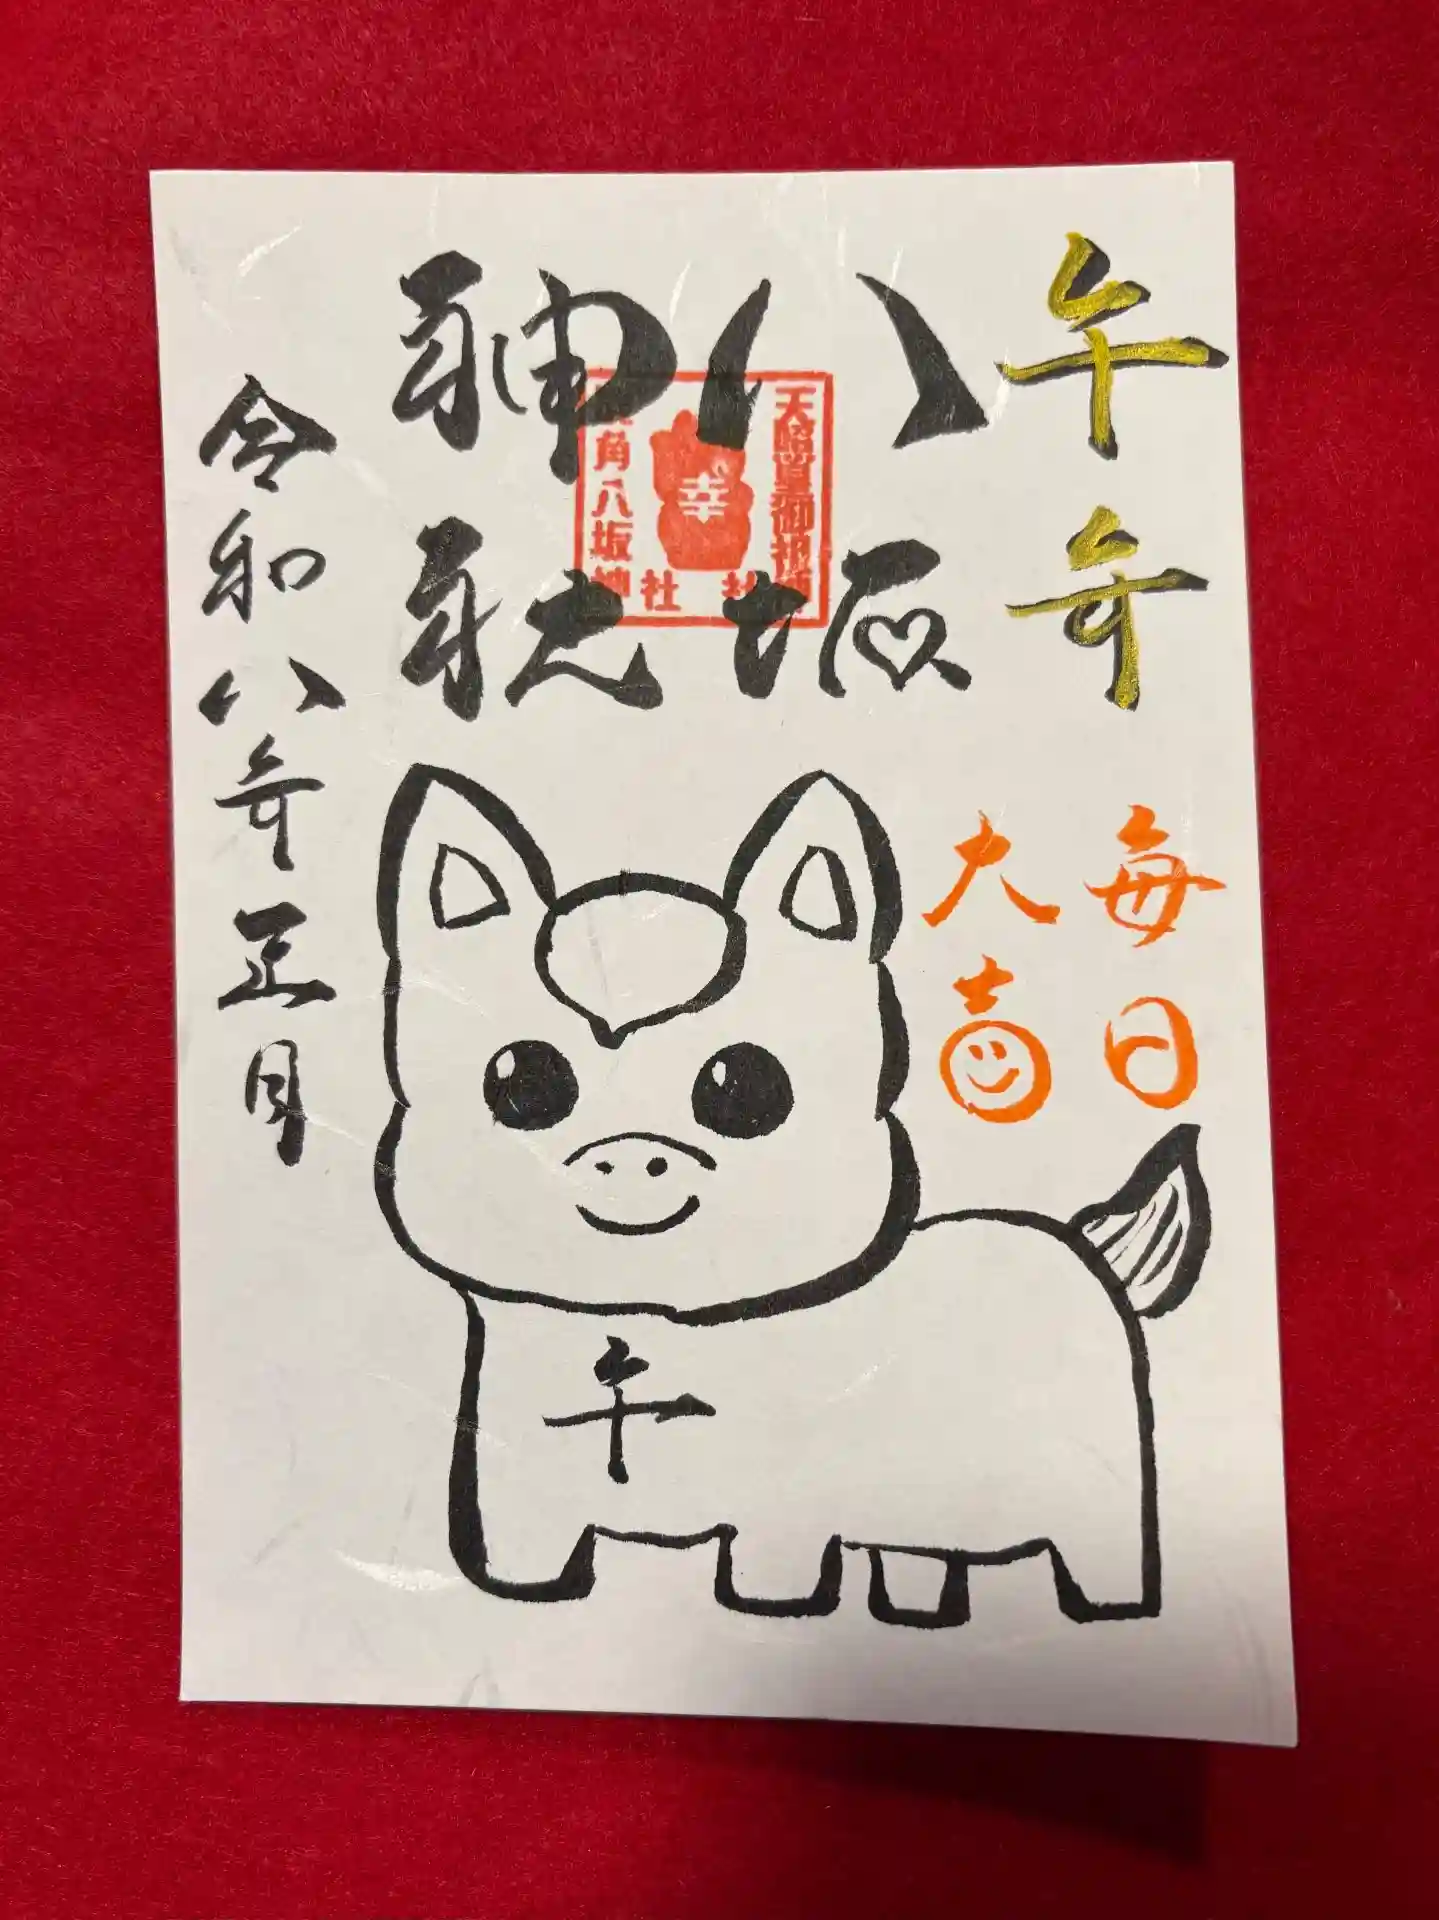 午年
毎日
大吉
八坂
神社
天皇御祖神社
角八坂神社
幸
令和八年正月
午